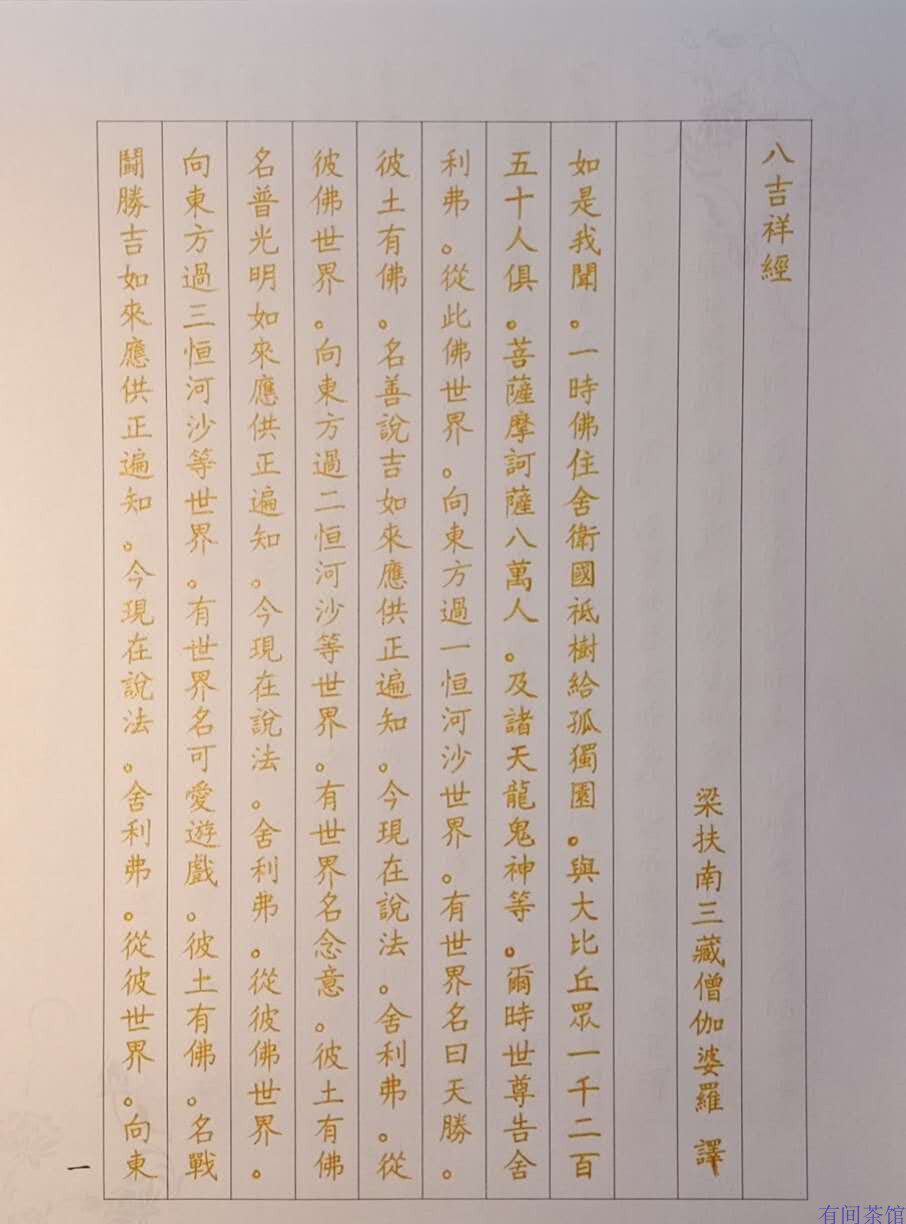 八吉祥經
梁扶南三藏僧伽婆羅 譯
如是我聞。一時佛住舍衛國祗樹給孤獨園。與大比丘眾一千二百
五十人俱。菩薩摩訶薩八萬人。及諸天龍鬼神等。爾時世尊告舍
利弗。從此佛世界。向東方過一恒河沙世界。有世界名曰天勝。
彼土有佛。名善說吉如來應供正遍知。今現在說法。舍利弗。從
彼佛世界。向東方過二恒河沙等世界。有世界名念意。彼土有佛
名普光明如來應供正遍知。今現在說法。舍利弗。從彼佛世界。
向東方過三恒河沙等世界。有世界名可愛遊戲。彼土有佛。名戰
鬪勝吉如來應供正遍知。今現在說法。舍利弗。從彼世界。向東
一
有间茶馆